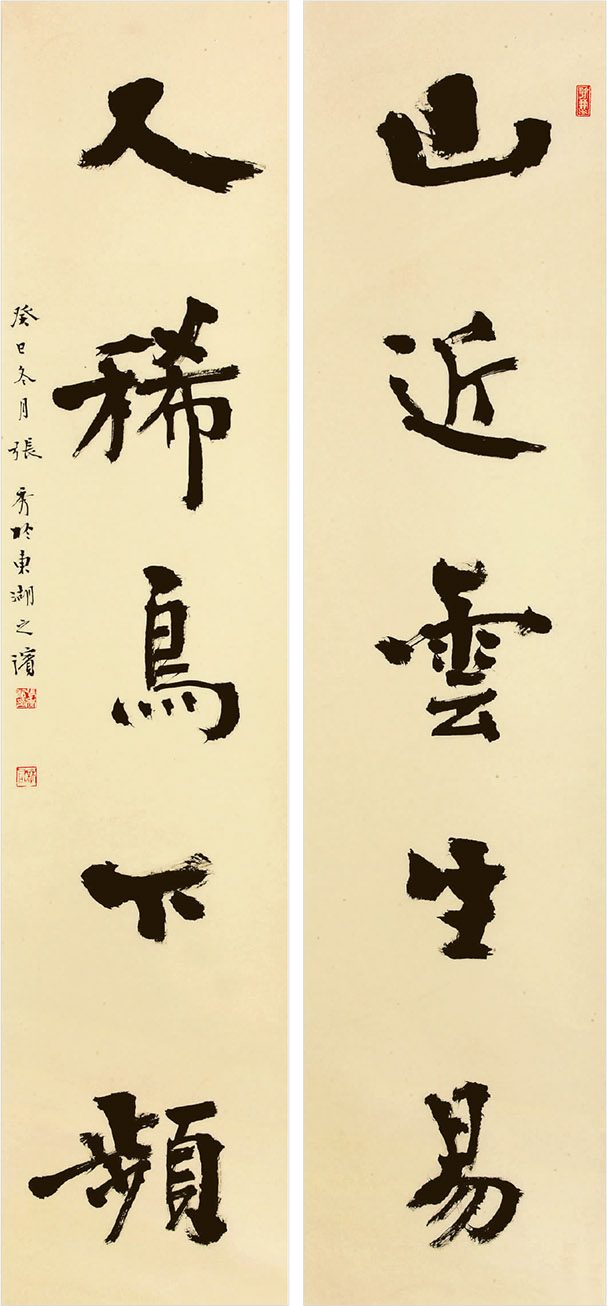 山近雲生易
人稀鳥下頻
癸巳冬月張秀於東湖之濱